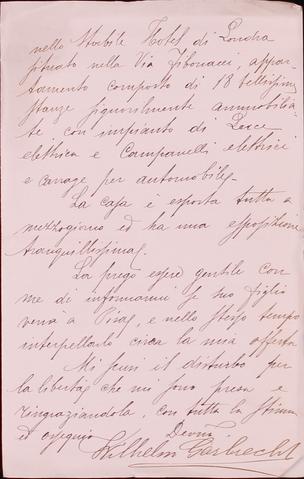 nello Stabile Hotel di Londra
situato nella Via Fibonacci, appar-
tamento composto di 18 bellissime
stanze signorilmente ammobilia-
te con impianto di Luce
elettrica e Campanelli elettrici
e garage per automobile.
La casa è esposta tutta a
mezzogiorno ed ha una esposizione
tranquillissima.
La prego essere gentile con
me di informarmi se suo figlio
verrà a Pisa, e nello stesso tempo
interpellarlo circa la mia offerta
Mi scusi il disturbo per
la libertà che mi sono presa e
ringraziandola, con tutta la stima
ed ossequio Devmo.
Wilhelm Garbrecht